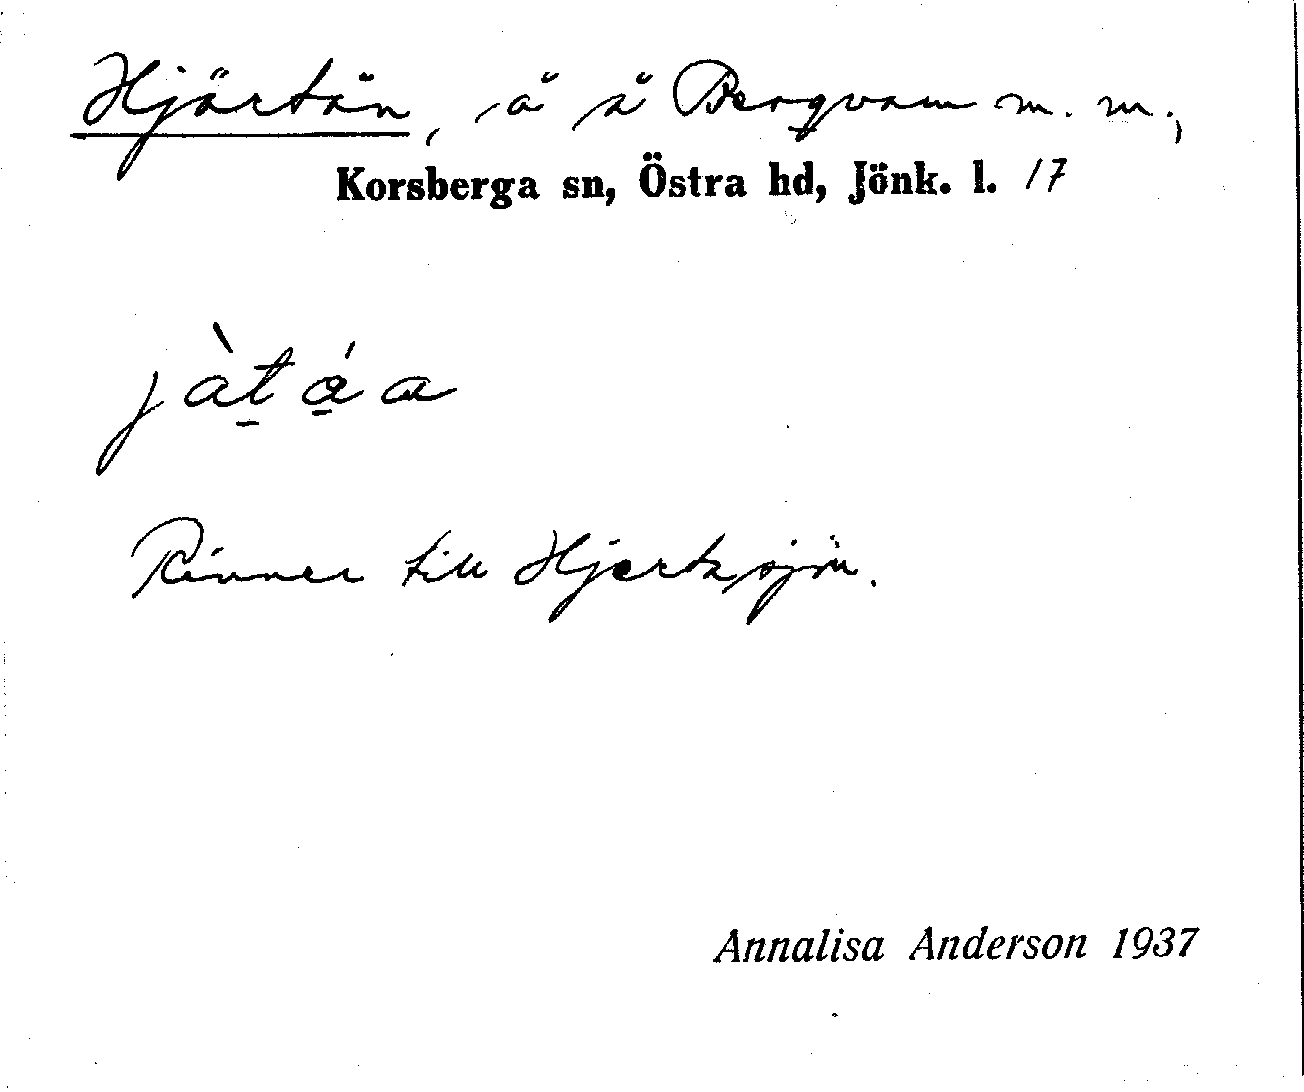 Hjärtån, å å Bergvam m. m.,
Korsberga sn, Östra hd, Jönk. l. 17
jàt̠ á̠ a
Rinner till Hjertasjön.
Annalisa Anderson 1937